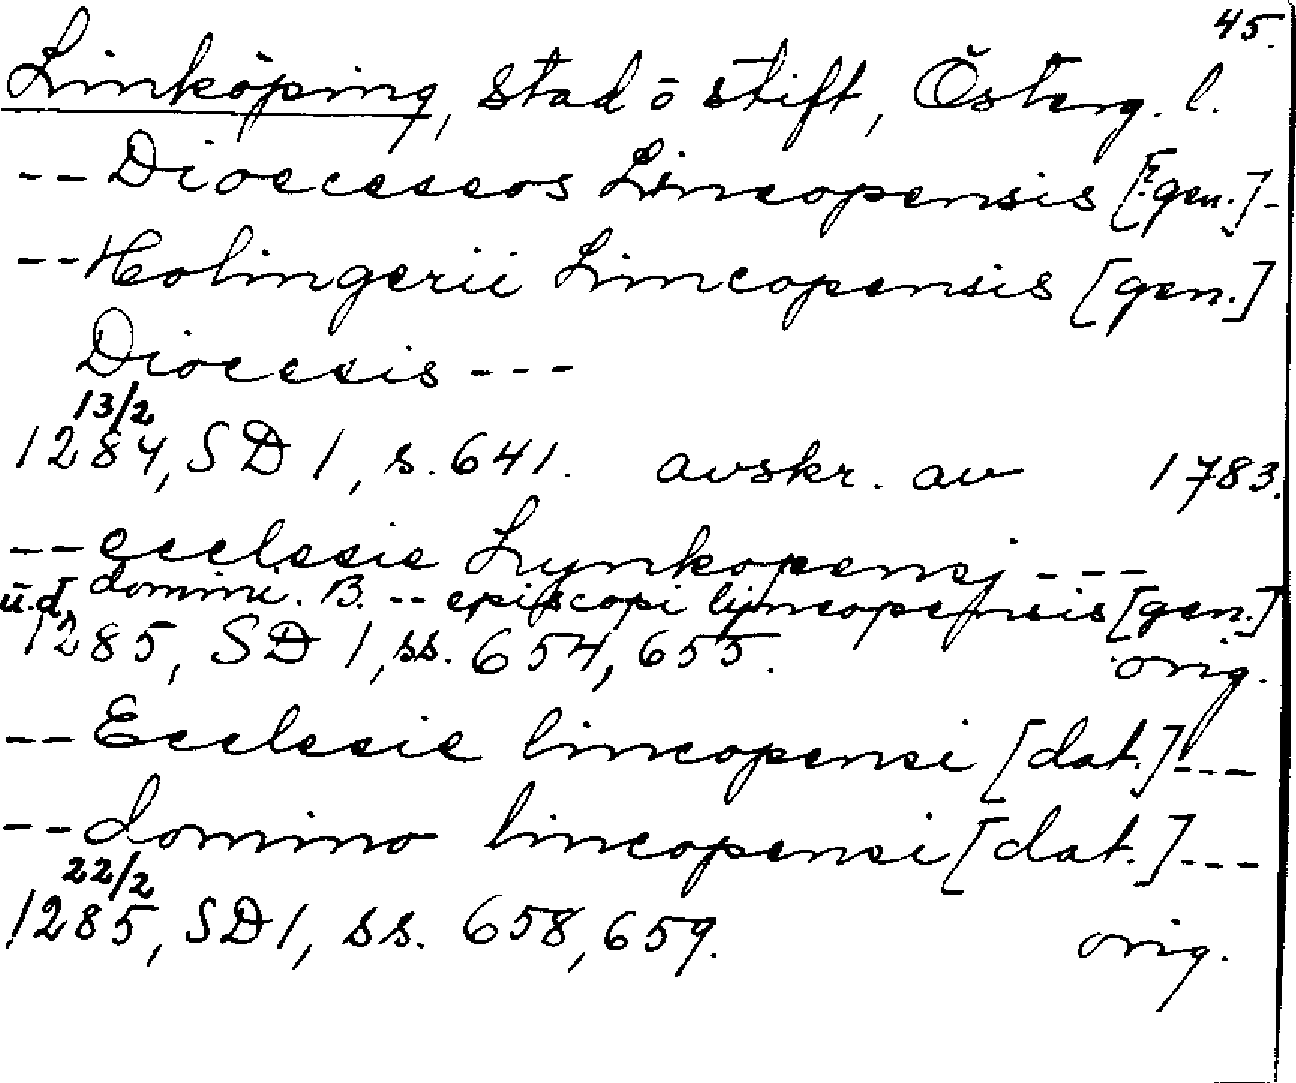 45.
Linköping, stad o stift, Österg. l.
-- Dioeceseos Lincopensis [gen.] -
-- Holingerii Limcopensis [gen.]
Diocesis ---
13/2
1284, SD 1, s. 641. avskr. av 1783.
-- ecclesie Lynkopensj ---
domini. B. -- episcopi lijncopensis [gen.]
u.d.
1285, SD 1, ss. 654, 655. orig.
-- Ecclesie lincopensi [dat.] ---
-- domino lincopensi [dat.] ---
22/2
1285, SD 1, ss. 658, 659. orig.